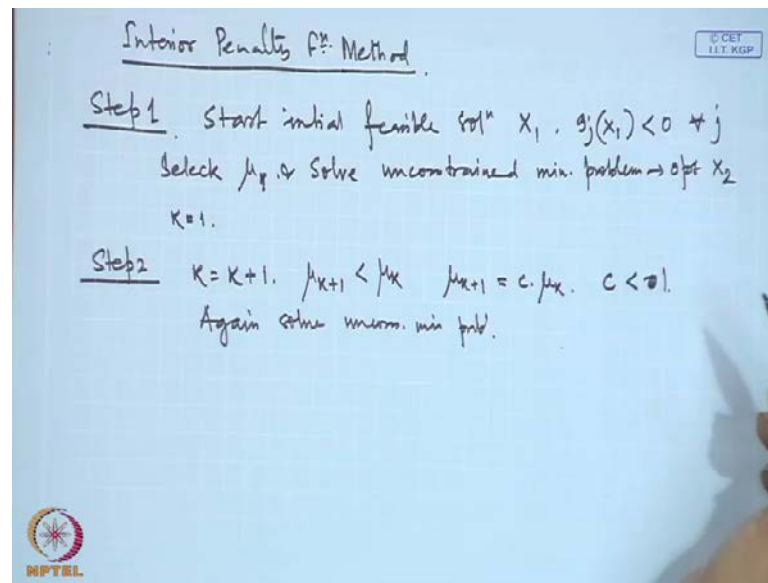 Interior Penalty Fⁿ. Method.
© CET
I.I.T. KGP
Step 1. Start intial feasible solⁿ X₁ . gⱼ(X₁) < 0 ∀ j
Select μ₁ & Solve unconstrained min. problem → opt X₂
K = 1.
Step 2 K = K+1. μ_{K+1} < μ_K μ_{K+1} = C. μ_K. C < 1.
Again solve uncons. min prob.
NPTEL